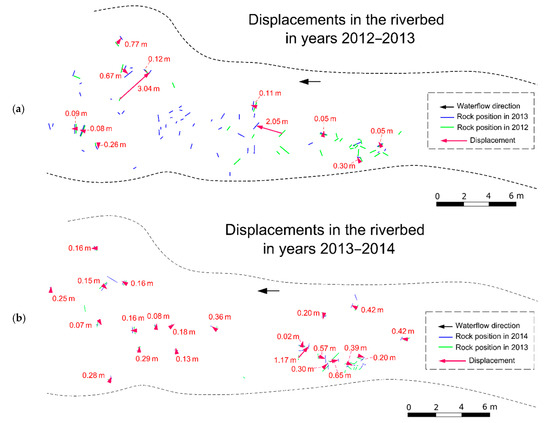 Displacements in the riverbed
in years 2012–2013
(a)
0.77 m
0.12 m
0.67 m
3.04 m
0.11 m
0.09 m
0.08 m
0.26 m
2.05 m
0.05 m
0.05 m
0.30 m
Waterflow direction
Rock position in 2013
Rock position in 2012
Displacement
0 2 4 6 m
Displacements in the riverbed
in years 2013–2014
(b)
0.16 m
0.15 m
0.16 m
0.25 m
0.07 m
0.16 m
0.08 m
0.18 m
0.36 m
0.29 m
0.13 m
0.28 m
0.20 m
0.42 m
0.02 m
0.57 m
0.39 m
0.42 m
1.17 m
0.20 m
0.30 m
0.65 m
Waterflow direction
Rock position in 2014
Rock position in 2013
Displacement
0 2 4 6 m